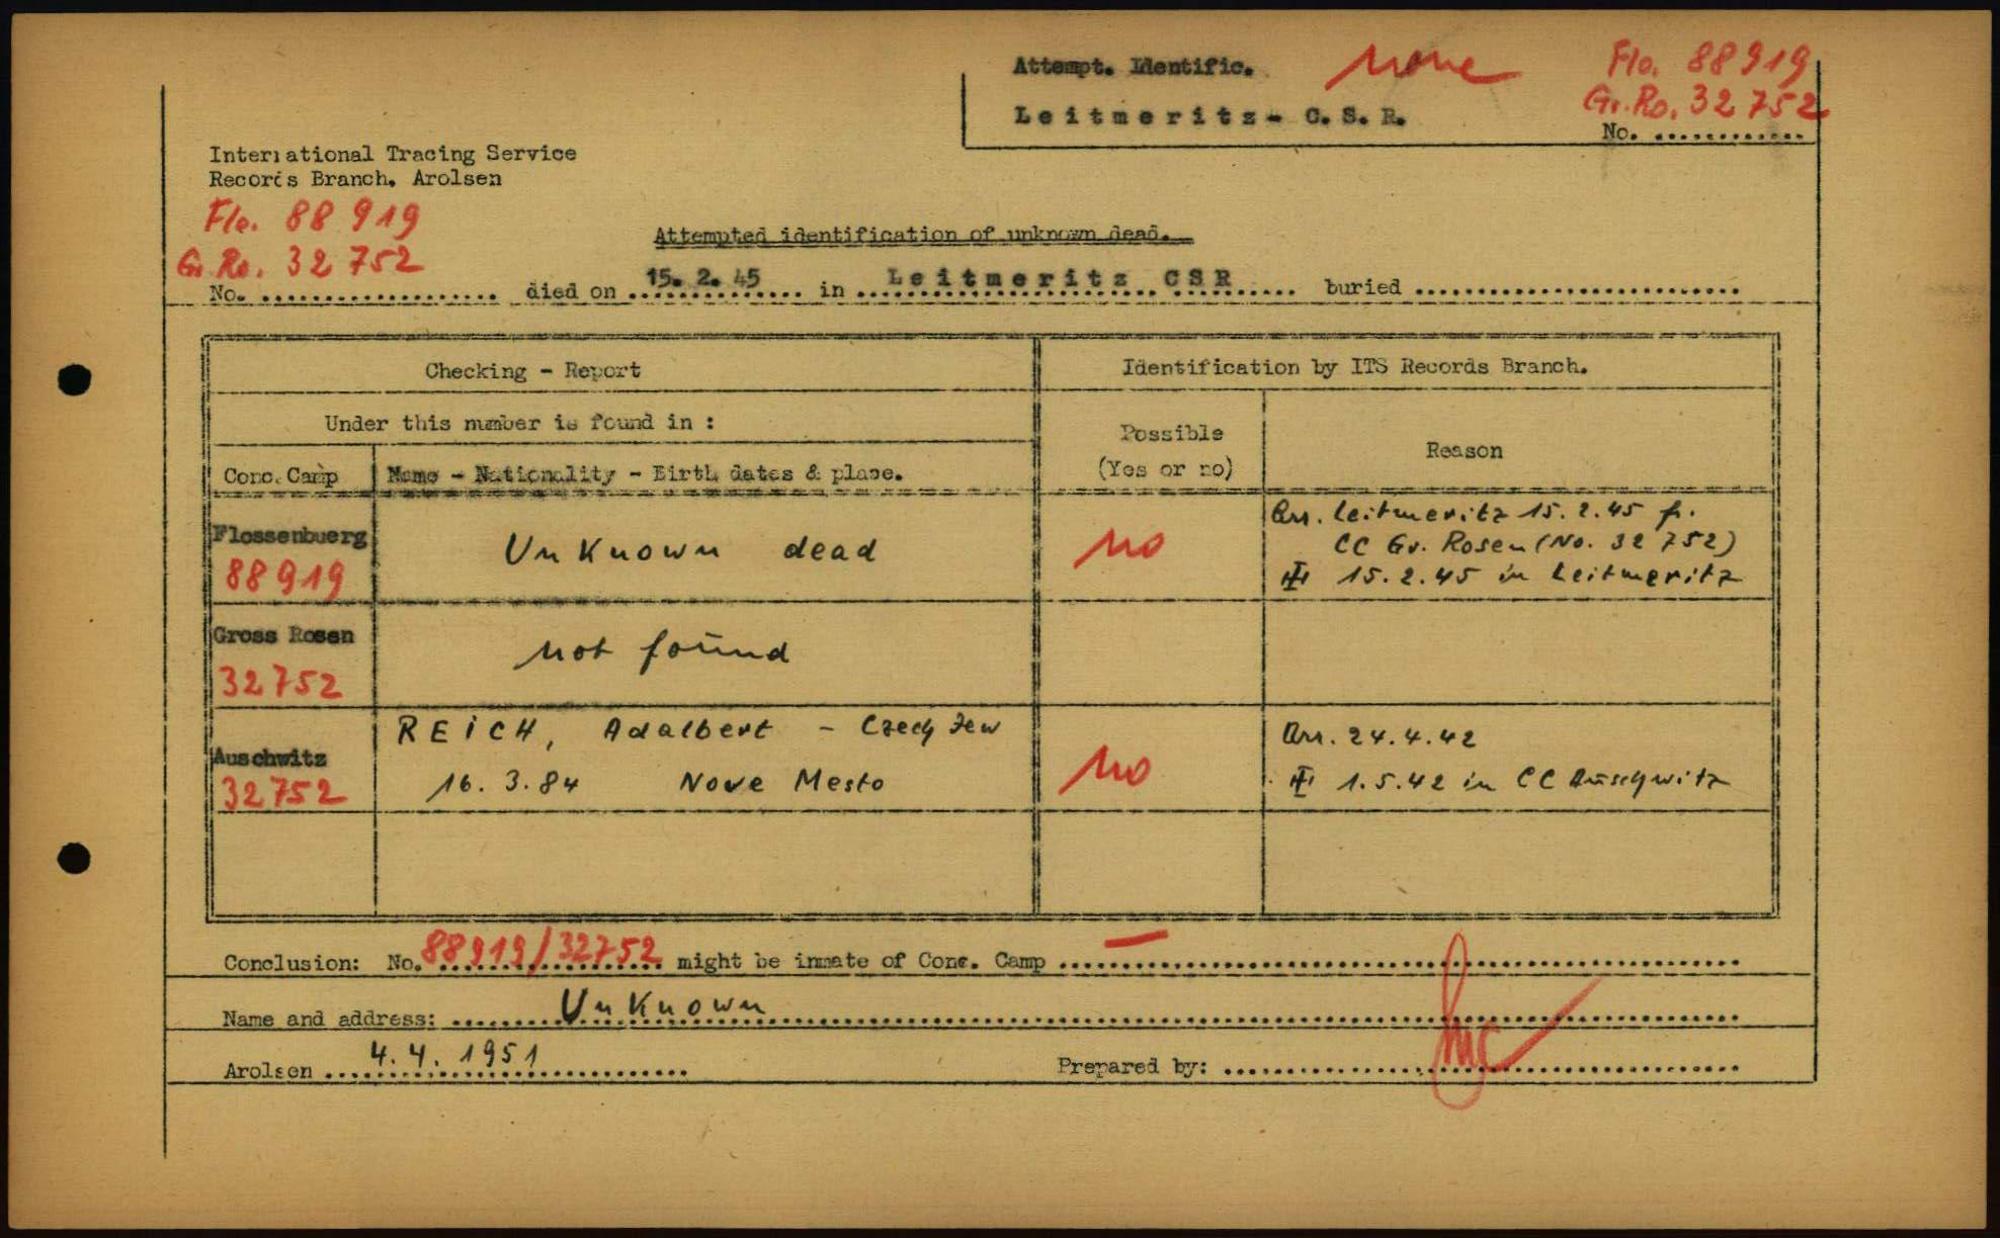 Attempt. Identific. none Flo. 88919
Leitmeritz- C.S.R. Gr.Ro. 32752
No. ............
International Tracing Service
Records Branch. Arolsen
Flo. 88919
Gr. Ro. 32752
Attempted identification of unknown dead.
No. .................... died on 15. 2. 45 in Leitmeritz CSR buried ..........................
Checking - Report Identification by ITS Records Branch.
Under this number is found in :
Possible
(Yes or no)
Reason
Conc. Camp Name - Nationality - Birth dates & place.
Flossenbuerg
88919
Unknown dead
no
Arr. Leitmeritz 15. 2. 45 fr.
CC Gr. Rosen (No. 32 752)
15. 2. 45 in Leitmeritz
Gross Rosen
32752
not found
Auschwitz
32752
REICH, Adalbert - Czech Jew
16. 3. 84 Nove Mesto
no
Arr. 24. 4. 42
1. 5. 42 in CC Auschwitz
Conclusion: No. 88919/32752 might be inmate of Conc. Camp —
Name and address: Unknown
Arolsen 4. 4. 1951 Prepared by: